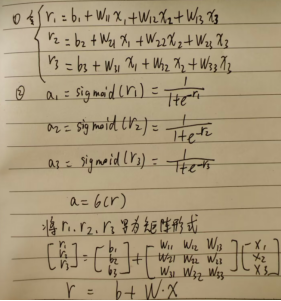 ① 令 { r₁ = b₁ + w₁₁ x₁ + w₁₂ x₂ + w₁₃ x₃
r₂ = b₂ + w₂₁ x₁ + w₂₂ x₂ + w₂₃ x₃
r₃ = b₃ + w₃₁ x₁ + w₃₂ x₂ + w₃₃ x₃
② a₁ = sigmoid(r₁) = 1/(1+e^-r₁)
a₂ = sigmoid(r₂) = 1/(1+e^-r₂)
a₃ = sigmoid(r₃) = 1/(1+e^-r₃)
a = σ(r)
将 r₁, r₂, r₃ 写为矩阵形式
[r₁ r₂ r₃] = [b₁ b₂ b₃] + [w₁₁ w₁₂ w₁₃ w₂₁ w₂₂ w₂₃ w₃₁ w₃₂ w₃₃] [x₁ x₂ x₃]
r = b + W · x